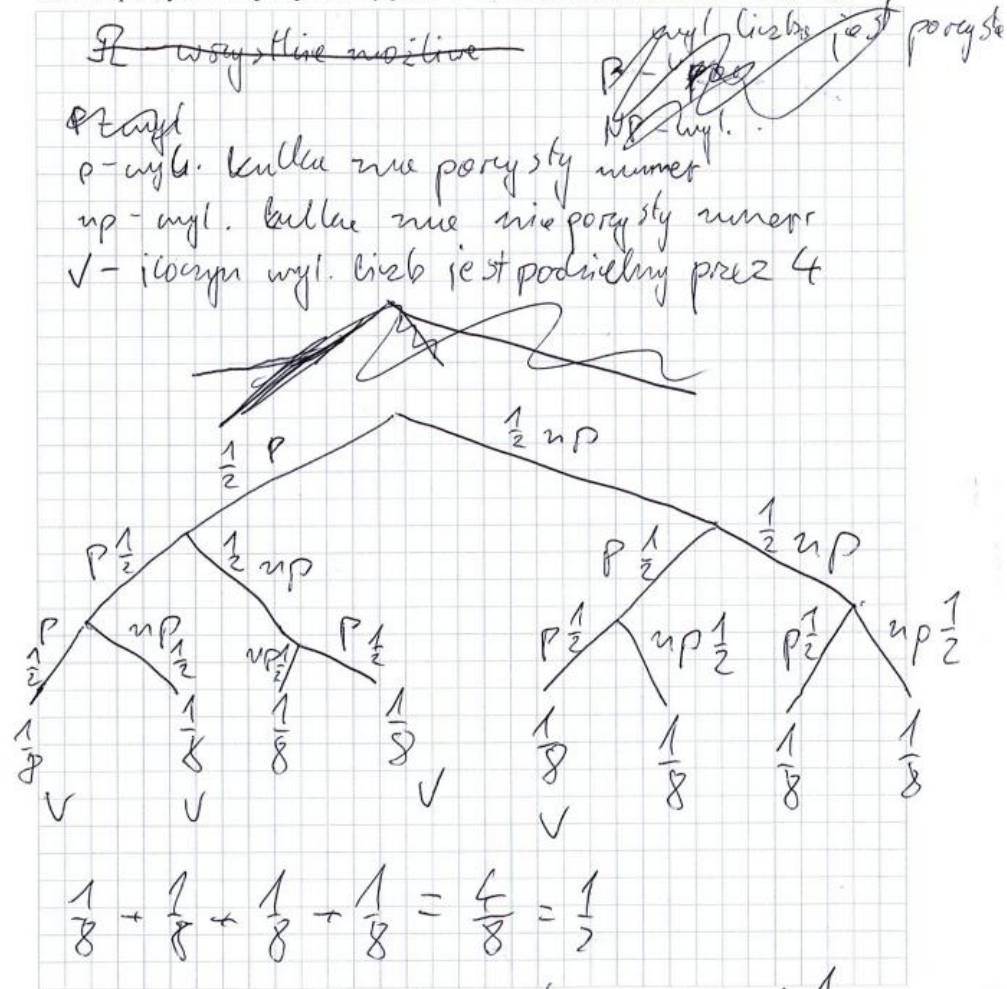 Ω - wszystkie możliwe
wyl liczba jest parzysta
P -
NP - wyl.
p - wyl. kulka ma parzysty numer
np - wyl. kulka ma nieparzysty numer
V - iloczyn wyl. liczb jest podzielny przez 4
1/2 P 1/2 np
P 1/2 1/2 np P 1/2 1/2 np
P 1/2 np 1/2 np 1/2 P 1/2 P 1/2 np 1/2 P 1/2 np 1/2
1/8 1/8 1/8 1/8 1/8 1/8 1/8 1/8
V V V V
1/8 + 1/8 + 1/8 + 1/8 = 4/8 = 1/2